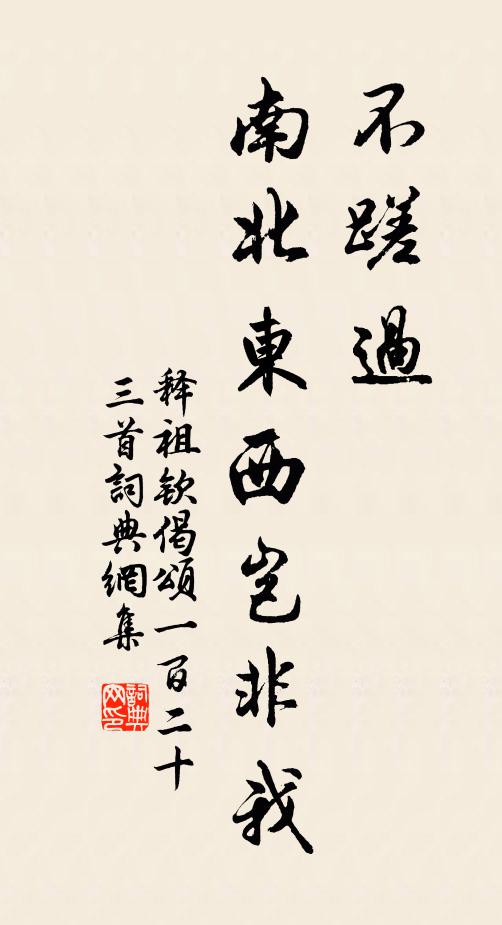 不蹉過
南北東西豈非我
释祖钦偈頌一百二十
三首詞典網集
詞典
网印